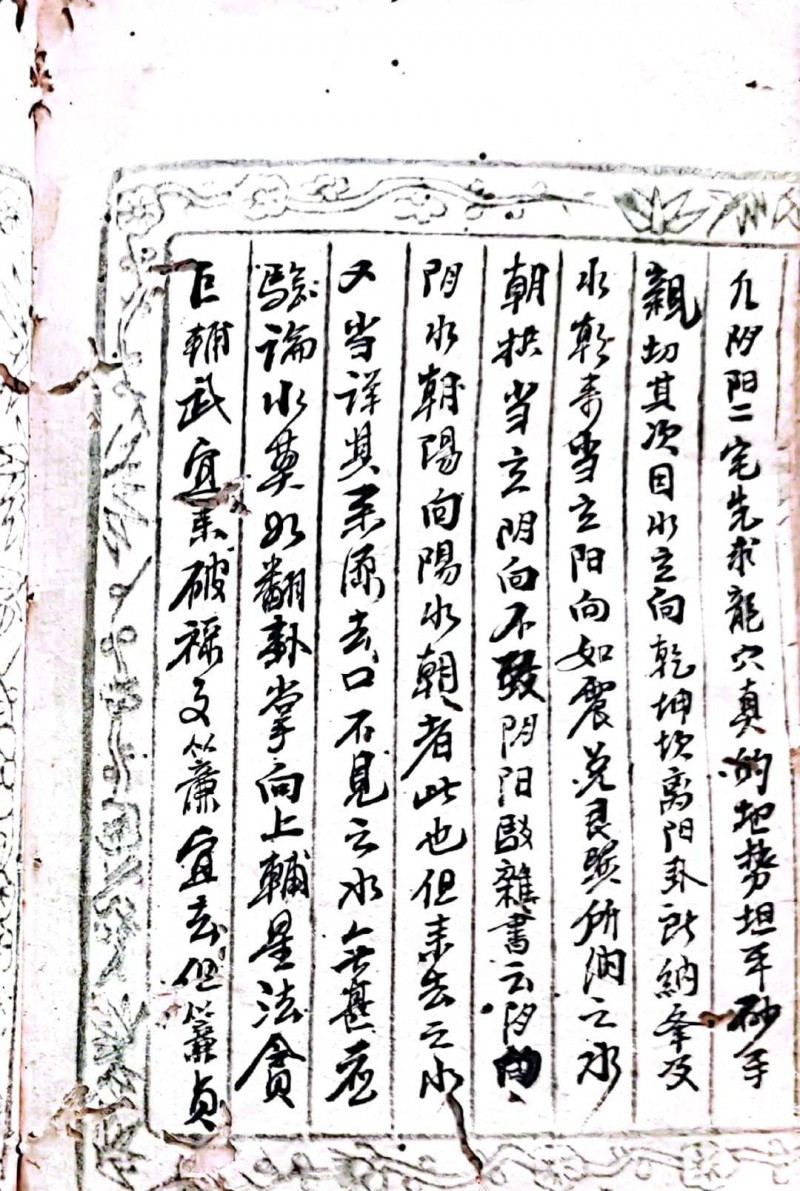 凡阴阳二宅先求龍穴真的地势坦平砂手
親切其次因水立向乾坤坎离阳卦所納峯及
水朝来当立阳向如震兑艮巽所纳之水
朝拱当立阴向不致阴阳駁雜書云阴向
阴水朝陽向陽水朝者此也但来去之水
又当详其来源去口不見之水無甚应
驗论水莫如翻卦掌向上輔星法貪
巨輔武宜来破禄文廉宜去但廉貞